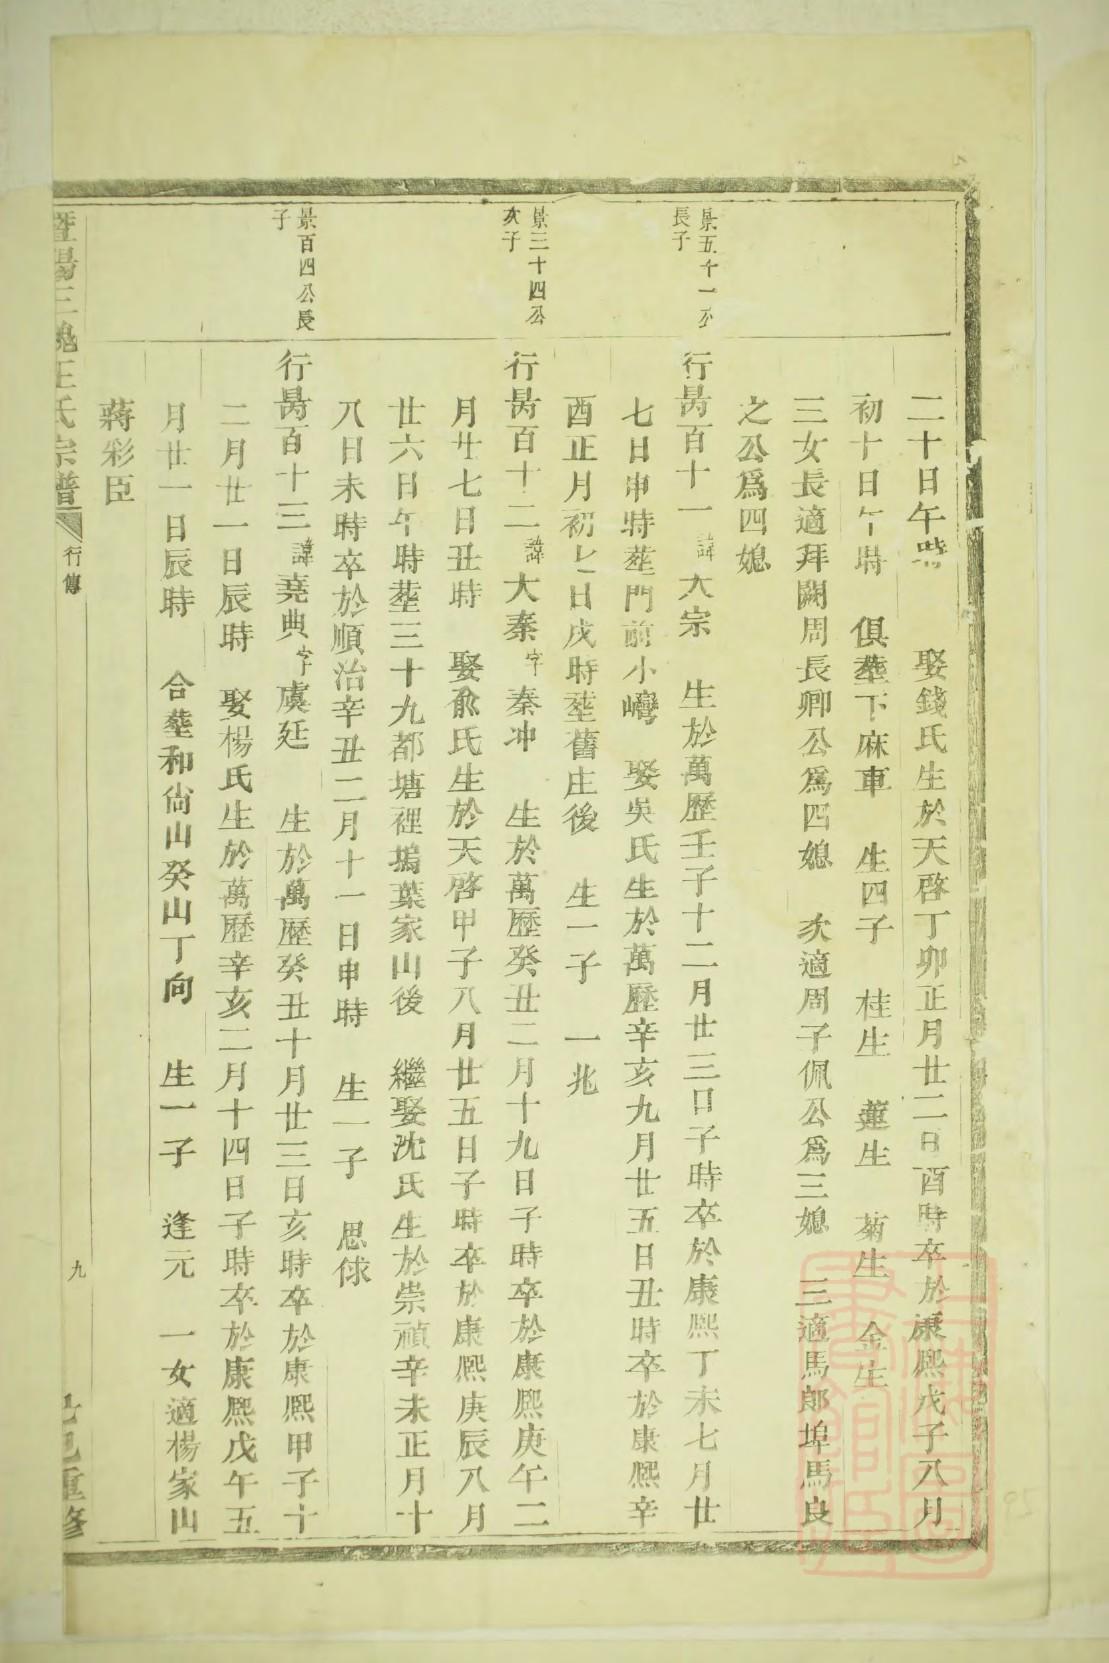 二十日午時 娶錢氏生於天啓丁卯正月廿二日酉時卒於康熙戊子八月
初十日午時 俱塟下麻車 生四子 桂生 蓮生 菊生 金生
三女長適拜闕周長卿公爲四媳 次適周子佩公爲三媳 三適馬郎埠馬良
之公爲四媳
景五十一公
長子
行昺百十一 諱大宗 生於萬歷壬子十二月廿三日子時卒於康熙丁未七月廿
七日申時塟門前小灣 娶吳氏生於萬歷辛亥九月廿五日丑時卒於康熙辛
酉正月初七日戌時塟舊庄後 生一子 一兆
景三十四公
次子
行昺百十二 諱大秦 字秦冲 生於萬歷癸丑二月十九日子時卒於康熙庚午二
月廿七日丑時 娶俞氏生於天啓甲子八月廿五日子時卒於康熙庚辰八月
廿六日午時塟三十九都塘裡塢葉家山後 繼娶沈氏生於崇禎辛未正月十
八日未時卒於順治辛丑二月十一日申時 生一子 思俅
景百四公長
子
行昺百十三 諱堯典 字虞廷 生於萬歷癸丑十月廿三日亥時卒於康熙甲子十
二月廿一日辰時 娶楊氏生於萬歷辛亥二月十四日子時卒於康熙戊午五
月廿一日辰時 合塟和尙山癸山丁向 生一子 逢元 一女適楊家山
蔣彩臣
暨陽三槐王氏宗譜 行傳 九 重修